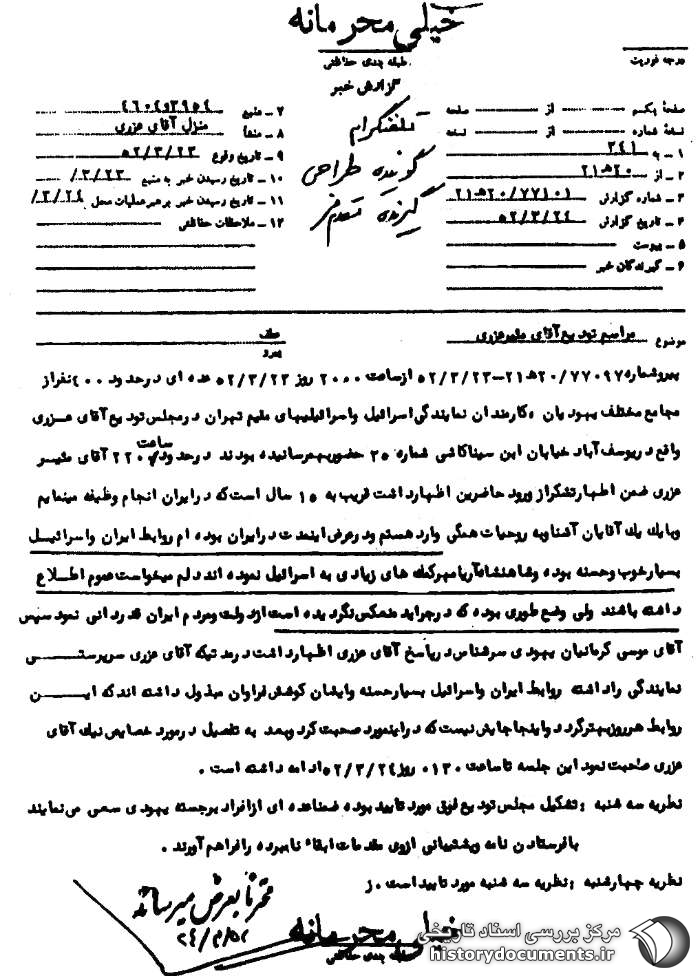 خیلی محرمانه
طبقه بندی حفاظتی
درجه فوریت
گزارش خبر
صفحهٔ یکم از صفحه
نسخهٔ شماره از نسخه
۱ ـ به ۳۴۱
۲ ـ از ۲۰هـ۲۱
۳ ـ شماره گزارش ۲۰/۷۷۱۰۱هـ۲۱
۴ ـ تاریخ گزارش ۵۲/۳/۲۴
۵ ـ پیوست
۶ ـ گیرندگان خبر
تلفنگرام
گوینده طراحی
گیرنده
۷ ـ منبع
۸ ـ منشأ منزل آقای عزری
۹ ـ تاریخ وقوع ۵۲/۳/۲۳
۱۰ ـ تاریخ رسیدن خبر به منبع ۳/۲۳/
۱۱ ـ تاریخ رسیدن خبر برهبر عملیات محل ۳/۲۴/
۱۲ ـ ملاحظات حفاظتی
موضوع مراسم تودیع آقای مئیر عزری
عطف
پیرو
پیرو شماره ۲۰/۷۷۰۹۷هـ۲۱ـ۵۲/۳/۲۳ از ساعت ۲۰۰۰ روز ۵۲/۳/۲۳ عده ای در حدود ۴۰۰ نفر از
مجامع مختلف یهودیان ، کارمندان نمایندگی اسرائیل و اسرائیلیهای مقیم تهران در مجلس تودیع آقای عزری
واقع در یوسف آباد خیابان ابن سینا کاشی شماره ۲۵ حضور بهم رسانیده بودند در حدود ساعت ۲۲۰۰ آقای مئیر
عزری ضمن اظهار تشکر از ورود حاضرین اظهار داشت قریب به ۱۵ سال است که در ایران انجام وظیفه مینمایم
و با یک یک آقایان آشنا و به روحیات همگی وارد هستم و در عرض اینمدت در ایران بوده ام روابط ایران و اسرائیل
بسیار خوب و حسنه بوده و شاهنشاه آریامهر کمک های زیادی به اسرائیل نموده اند دلم میخواست عموم اطلاع
داشته باشند ولی وضع طوری بوده که در جراید منعکس نگردیده است از دولت و مردم ایران قدردانی نمود سپس
آقای موسی کرمانیان یهودی سرشناس در پاسخ آقای عزری اظهار داشت در مدتیکه آقای عزری سرپرستی
نمایندگی را داشته روابط ایران و اسرائیل بسیار حسنه و ایشان کوشش فراوان مبذول داشته اند که این
روابط هر روز بهتر گردد و اینجا جایش نیست که در اینمورد صحبت کرد و بعد به تفصیل در مورد خصایص نیک آقای
عزری صاحبت نمود این جلسه تا ساعت ۰۱۳۰ روز ۵۲/۳/۲۴ ادامه داشته است .
نظریه سه شنبه : تشکیل مجلس تودیع فوق مورد تایید بوده ضمنا عده ای از افراد برجسته یهودی سعی می نمایند
با فرستادن نامه و پشتیبانی از وی مقدمات ابقاء نامبرده را فراهم آورند .
نظریه چهارشنبه : نظریه سه شنبه مورد تایید است . ز
محترماً بعرض میرساند
۲۴/۳/۵۲
خیلی محرمانه
طبقه بندی حفاظتی
مرکز بررسی اسناد تاریخی
historydocuments.ir